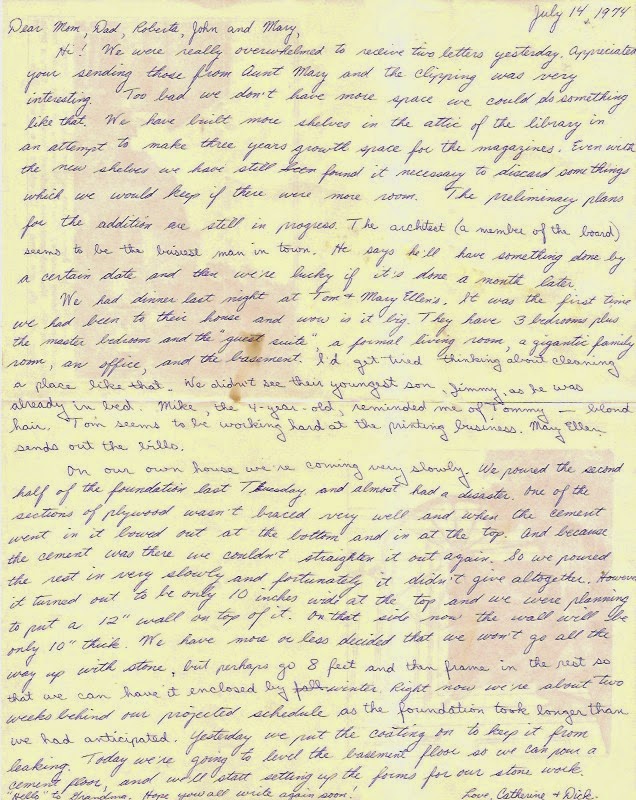 July 14, 1974
Dear Mom, Dad, Roberta, John and Mary,
Hi! We were really overwhelmed to receive two letters yesterday. Appreciated
your sending those from Aunt Mary and the clipping was very
interesting. Too bad we don't have more space we could do something
like that. We have built more shelves in the attic of the library in
an attempt to make three years growth space for the magazines. Even with
the new shelves we have still been found it necessary to discard some things
which we would keep if there were more room. The preliminary plans
for the addition are still in progress. The architect (a member of the board)
seems to be the busiest man in town. He says he'll have something done by
a certain date and then we're lucky if it's done a month later.
We had dinner last night at Tom & Mary Ellen's. It was the first time
we had been to their house and wow is it big. They have 3 bedrooms plus
the master bedroom and the "guest suite", a formal living room, a gigantic family
room, an office, and the basement. I'd get tired thinking about cleaning
a place like that. We didn't see their youngest son, Jimmy, as he was
already in bed. Mike, the 4-year-old, reminded me of Tommy — blond
hair. Tom seems to be working hard at the printing business. Mary Ellen
sends out the bills.
On our own house we're coming very slowly. We poured the second
half of the foundation last Tuesday and almost had a disaster. One of the
sections of plywood wasn't braced very well and when the cement
went in it bowed out at the bottom and in at the top. And because
the cement was there we couldn't straighten it out again. So we poured
the rest in very slowly and fortunately it didn't give altogether. However
it turned out to be only 10 inches wide at the top and we were planning
to put a 12" wall on top of it. On that side now the wall will be
only 10" thick. We have more or less decided that we won't go all the
way up with stone, but perhaps go 8 feet and than frame in the rest so
that we can have it enclosed by fall winter. Right now we're about two
weeks behind our projected schedule as the foundation took longer than
we had anticipated. Yesterday we put the coating on to keep it from
leaking. Today we're going to level the basement floor so we can pour a
cement floor, and we'll start setting up the forms for our stone work.
"Hello" to Grandma. Hope you all write again soon! Love, Catherine & Dick